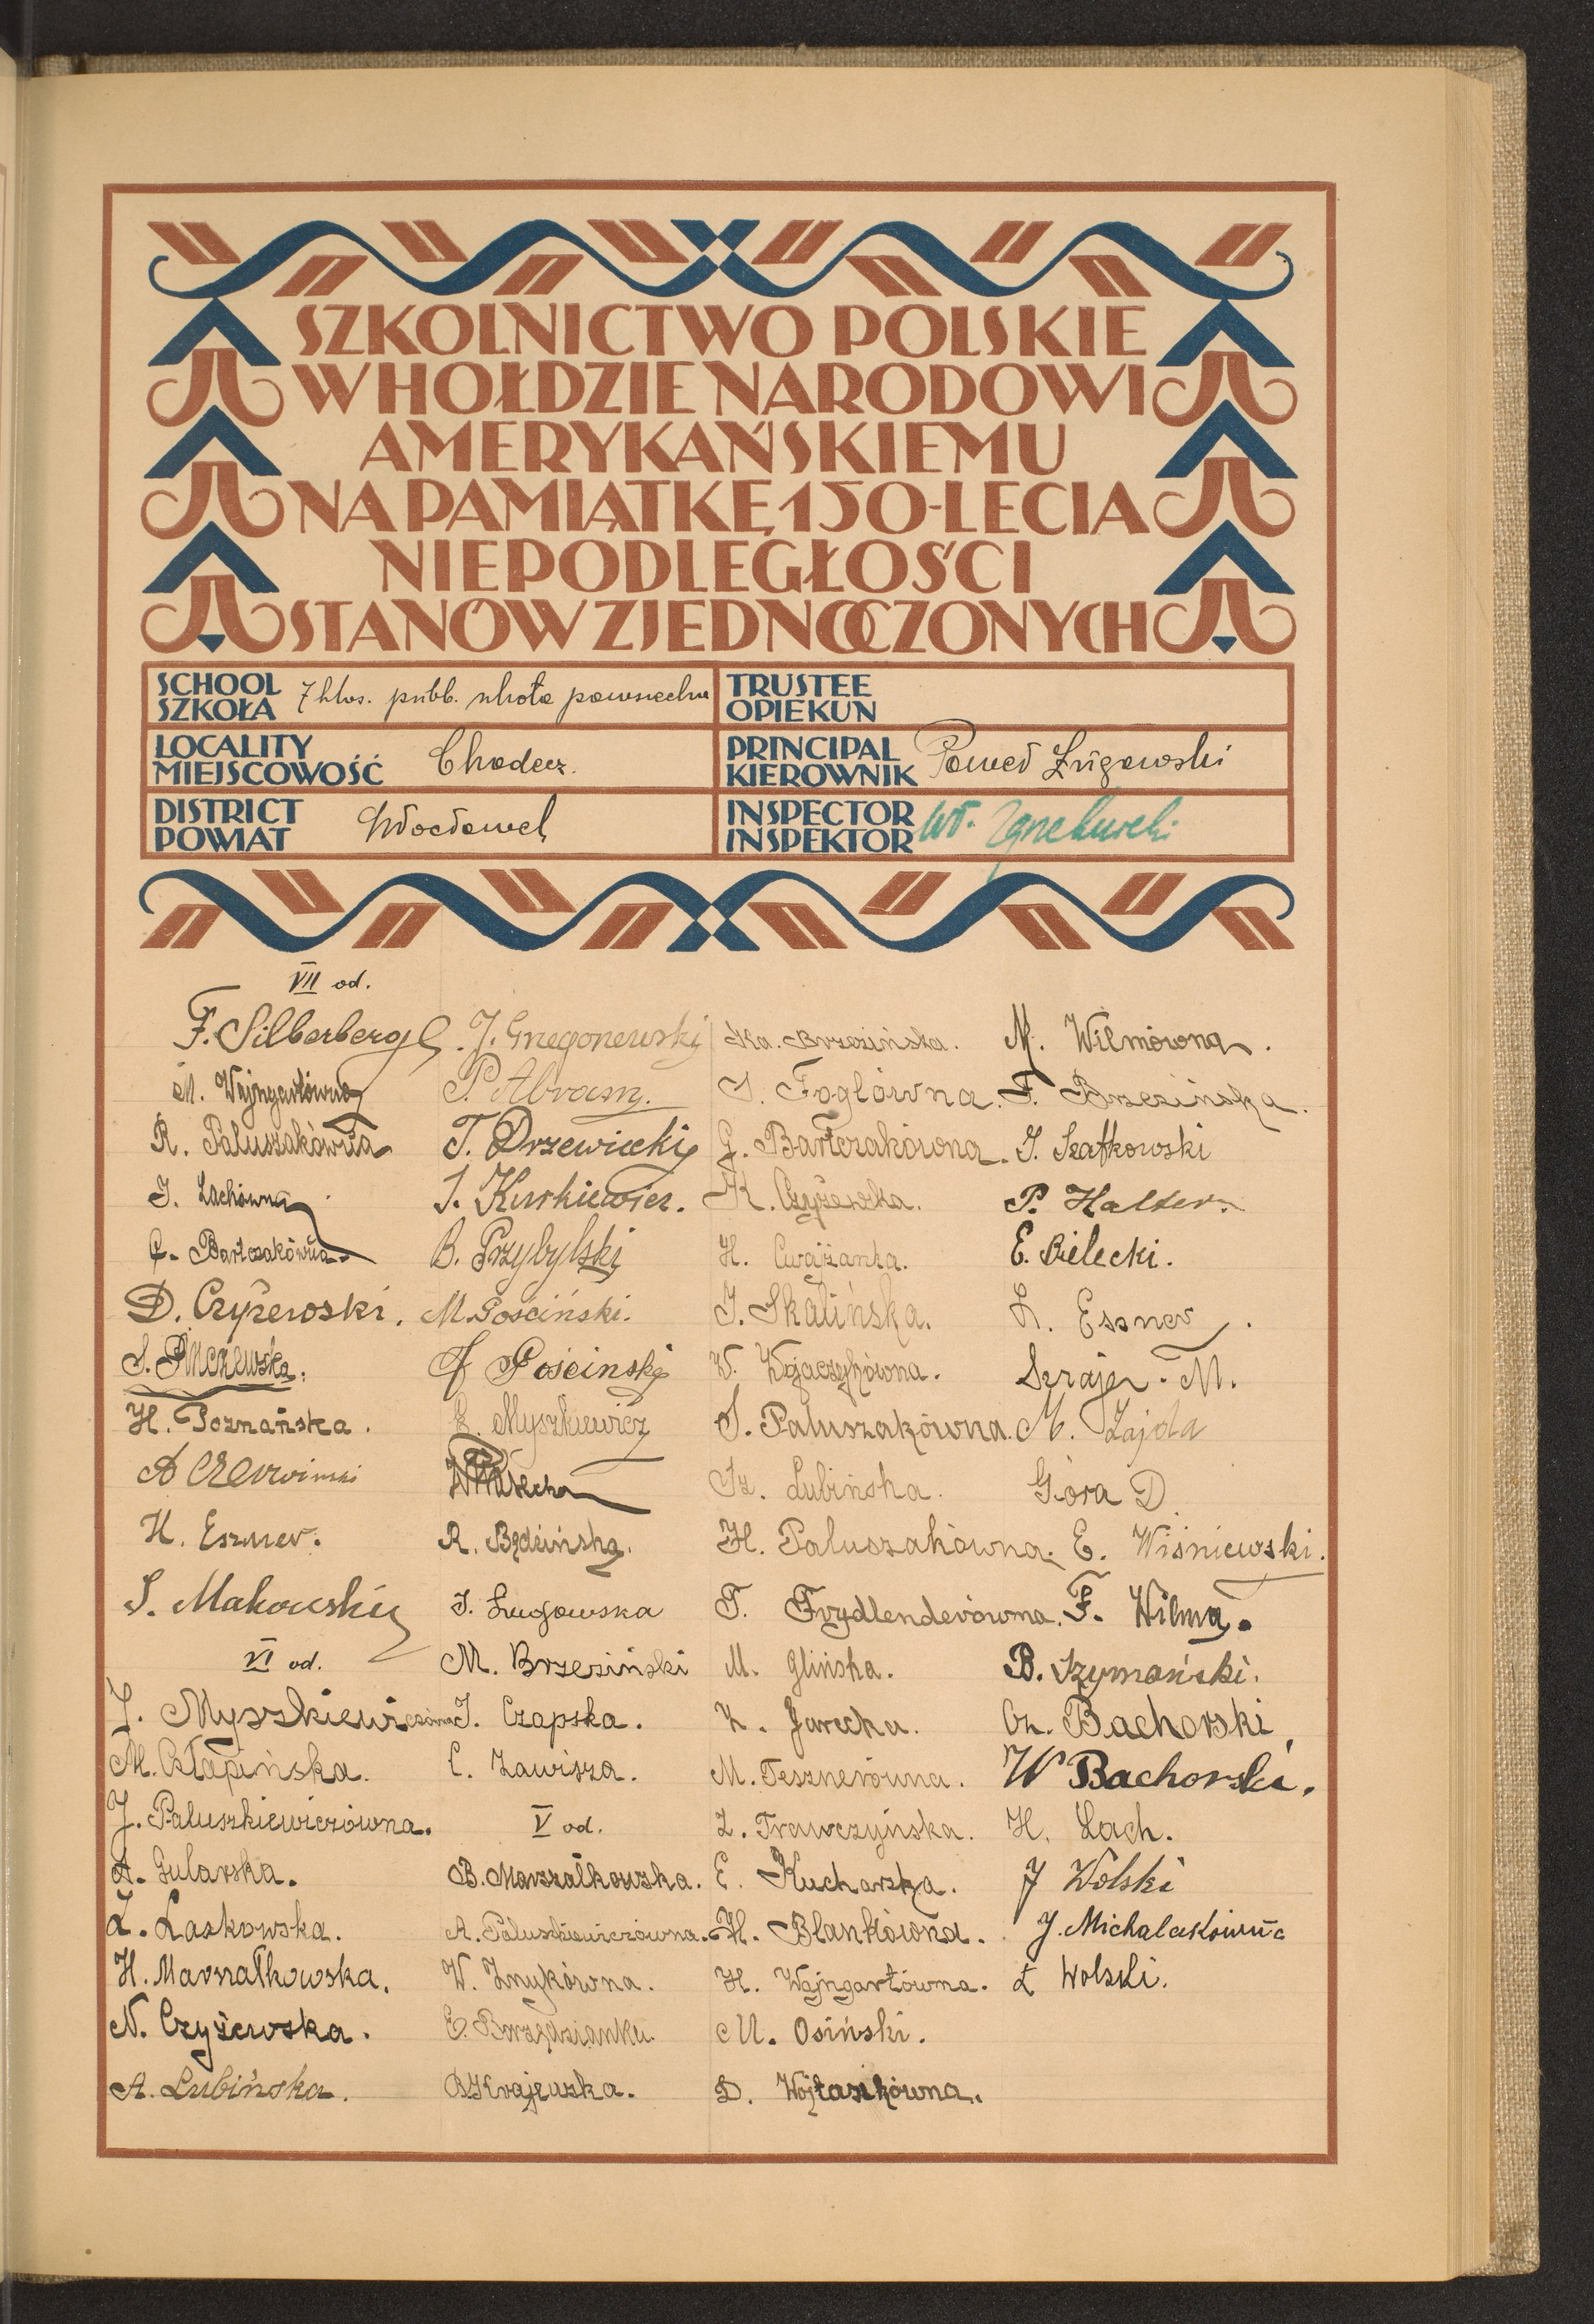 SZKOLNICTWO POLSKIE
W HOŁDZIE NARODOWI
AMERYKAŃSKIEMU
NA PAMIĄTKĘ 150-LECIA
NIEPODLEGŁOŚCI
STANÓW ZJEDNOCZONYCH
SCHOOL
SZKOŁA
7 klas. publ. szkoła powszechna
TRUSTEE
OPIEKUN
LOCALITY
MIEJSCOWOŚĆ
Chodecz.
PRINCIPAL
KIEROWNIK
Paweł Ługowski
DISTRICT
POWIAT
Włocławek
INSPECTOR
INSPEKTOR
Wł.
VII od.
F. Silberberg
M. Wajngartówna
R. Paluszakówna
J. Lachówna
C. Bartczakówna
D. Czyżewski.
S. Pińczewska.
H. Poznańska.
A Czerwiński
H. Eszner.
S. Makowski
VI od.
J. Myszkiewiczówna
M. Człapińska.
J. Paluszkiewiczówna.
A. Gularska.
Z. Laskowska.
H. Marszałkowska.
N. Czyżewska.
A. Lubińska.
J. Grzegorzewski
P. Abram.
T. Drzewiecki
S. Kurkiewicz.
B. Przybylski
M. Gościński.
Gościnski
Myszkiewicz
R. Będzińska.
J. Ługowska
M. Brzeziński
J. Czapska.
C. Zawisza.
V od.
B. Marszałkowska.
A. Paluszkiewiczówna.
W. Znykówna.
E.
B Krajewska.
Ka. Brzezińska.
S. Foglówna.
G. Bartczakówna.
K. Czyżewska.
H. Cwajżanka.
J. Skalińska.
W. Wojaczykówna.
S. Paluszakówna.
Lubińska.
H. Paluszakówna.
T. Frydlenderówna.
M. Glińska.
Z. Jarecka.
M. Tesznerówna.
Z. Trawczyńska.
E. Kucharska.
H. Blankówna.
H. Wajngartówna.
M. Osiński.
D. Wojtasikówna.
M. Wilmówna.
F. Brzezińska.
J. Szatkowski
P. Halter.
E. Bielecki.
L. Essner.
Szrajer. M.
M. Zajda
Góra D.
E. Wiśniewski.
F. Wilma.
B. Szymański.
Cz. Bachorski
W Bachorski.
H. Lach.
J Wolski
J. Michalakówna
Z Wolski.